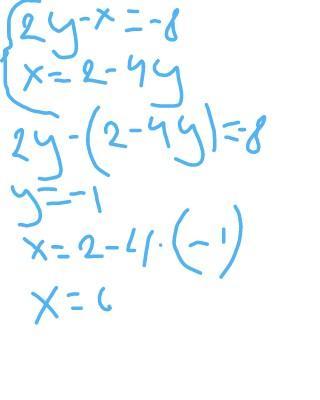 {2y-x=-8
x=2-4y
2y-(2-4y)=-8
y=-1
x=2-4·(-1)
x=6